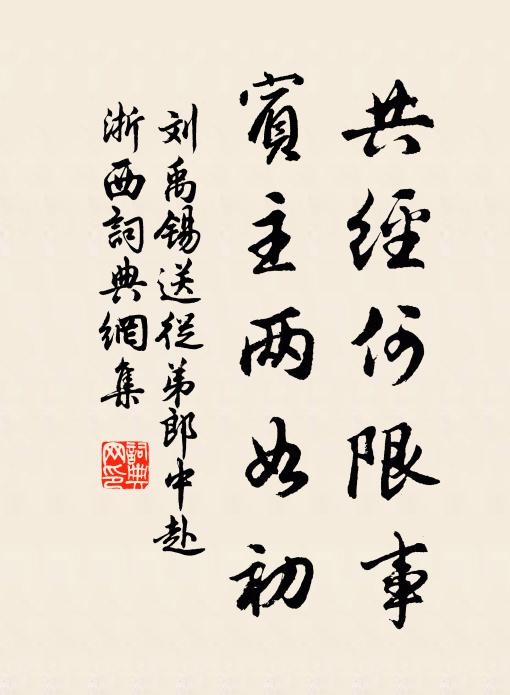 共經何限事
賓主两如初
刘禹錫送從弟郎中赴
浙西詞典網集
詞典网印